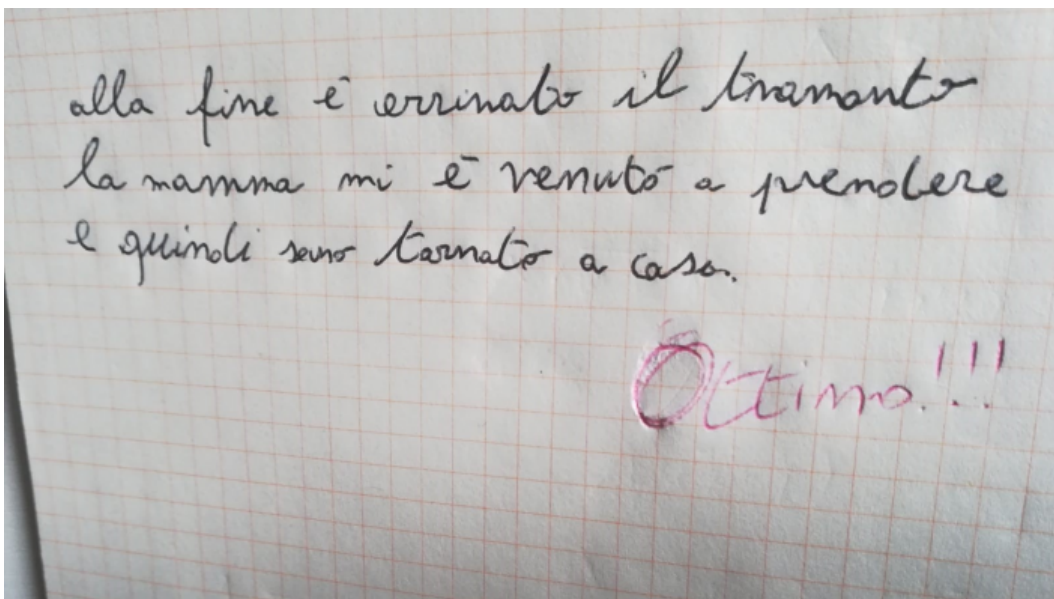 alla fine è arrivato il tramonto
la mamma mi è venuto a prendere
e quindi sono tornato a casa.
Ottimo!!!